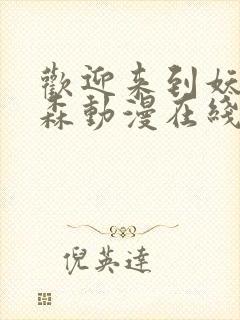 歡迎来到妖
森動漫在綫
倪英達